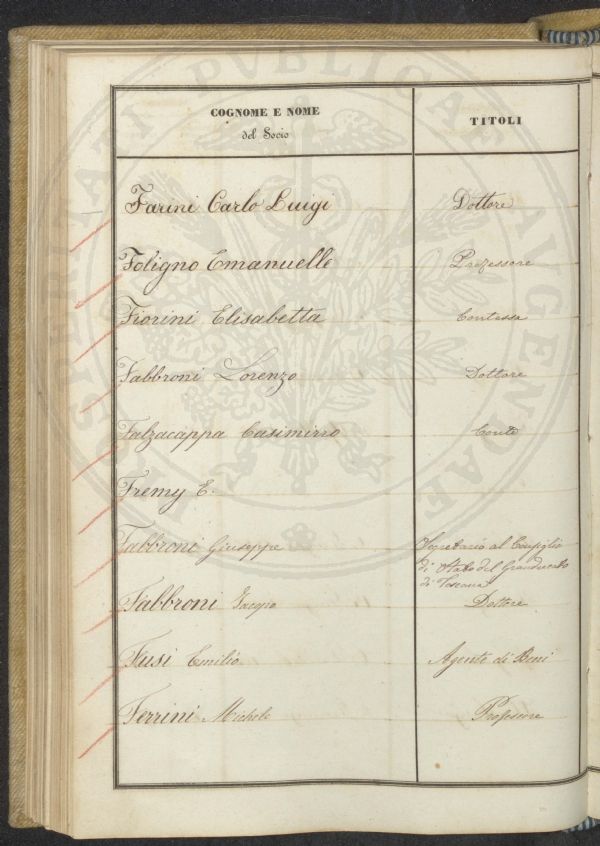 COGNOME E NOME
del Socio
TITOLI
Farini Carlo Luigi Dottore
Foligno Emanuelle Professore
Fiorini Elisabetta Contessa
Fabbroni Lorenzo Dottore
Falzacappa Casimirro Conte
Fremy E.
Fabbroni Giuseppe Segretario al Consiglio
di Stato del Granducato
di Toscana
Fabbroni Jacopo Dottore
Fusi Emilio Agente di Beni
Ferrini Michele Professore
PROSPERITATI PVBLICAE AVGENDAE